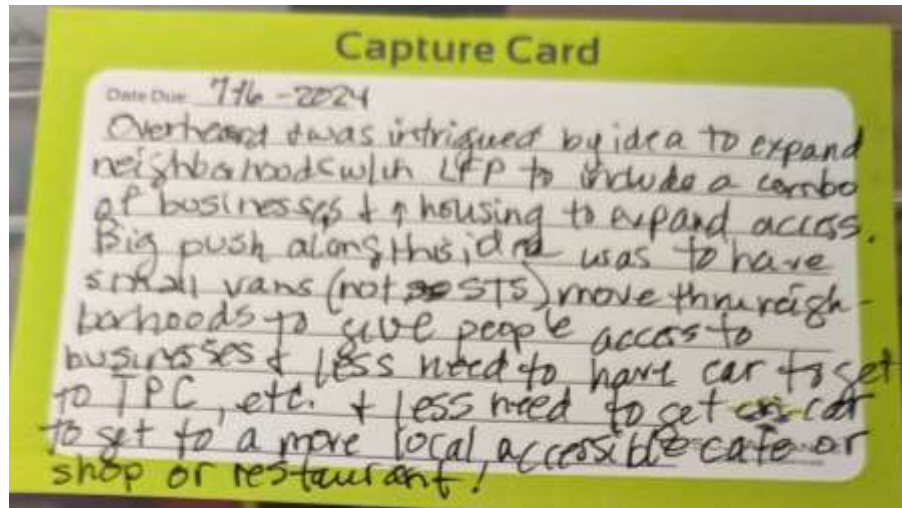 Capture Card
Date Due 7/16-2024
Overheard & was intrigued by idea to expand
neighborhoods w/in LFP to include a combo
of businesses & ↑ housing to expand access.
Big push along this idea was to have
small vans (not STS) move thru neigh-
borhoods to give people access to
businesses & less need to have car to get
to TPC, etc. & less need to get car
to get to a more local accessible cafe or
shop or restaurant!